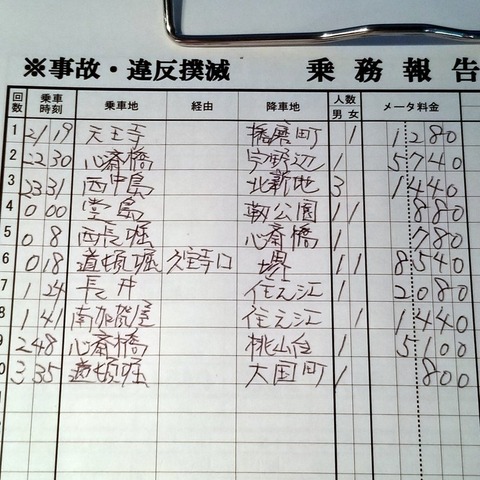 ※事故・違反撲滅 乗務報告
回数 乗車時刻 乗車地 経由 降車地 人数 男 女 メータ料金
1 21 19 天王寺 播磨町 1 1280
2 22 30 心斎橋 宇野辺 1 5740
3 23 31 西中島 北新地 3 1440
4 0 00 堂島 靭公園 1 1 880
5 0 8 西長堀 心斎橋 1 780
6 0 18 道頓堀 久宝寺口 堺 1 1 8540
7 1 24 長井 住之江 1 2080
8 1 41 南加賀屋 住之江 1 1440
9 2 48 心斎橋 桃山台 1 5100
0 3 35 道頓堀 大国町 1 800